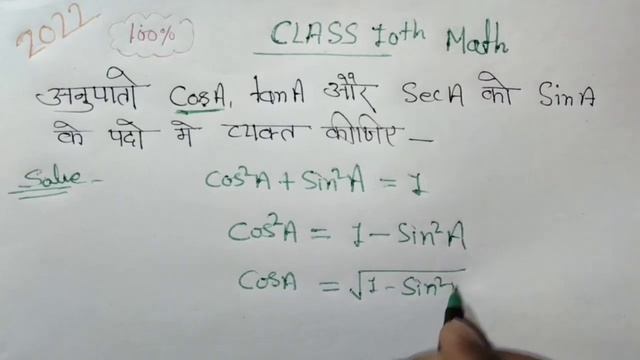 2022
100%
CLASS 10th Math
अनुपातो CosA, tanA और SecA को SinA
के पदो मे व्यक्त कीजिए –
Solve –
Cos²A + Sin²A = 1
Cos²A = 1 – Sin²A
CosA = √1 – Sin²